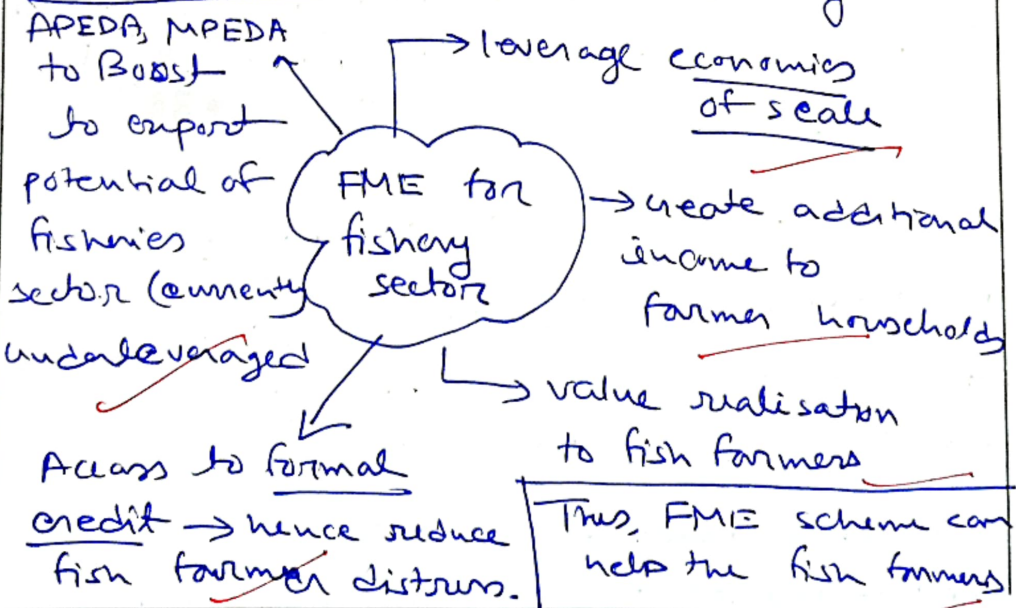 APEDA, MPEDA
to Boost
to export
potential of
fisheries
sector (currently
underleveraged
leverage economies
of scale
FME for
fishery
sector
create additional
income to
farmer households
value realisation
to fish farmers
Access to formal
credit → hence reduce
fish farmer distress.
Thus, FME scheme can
help the fish farmers